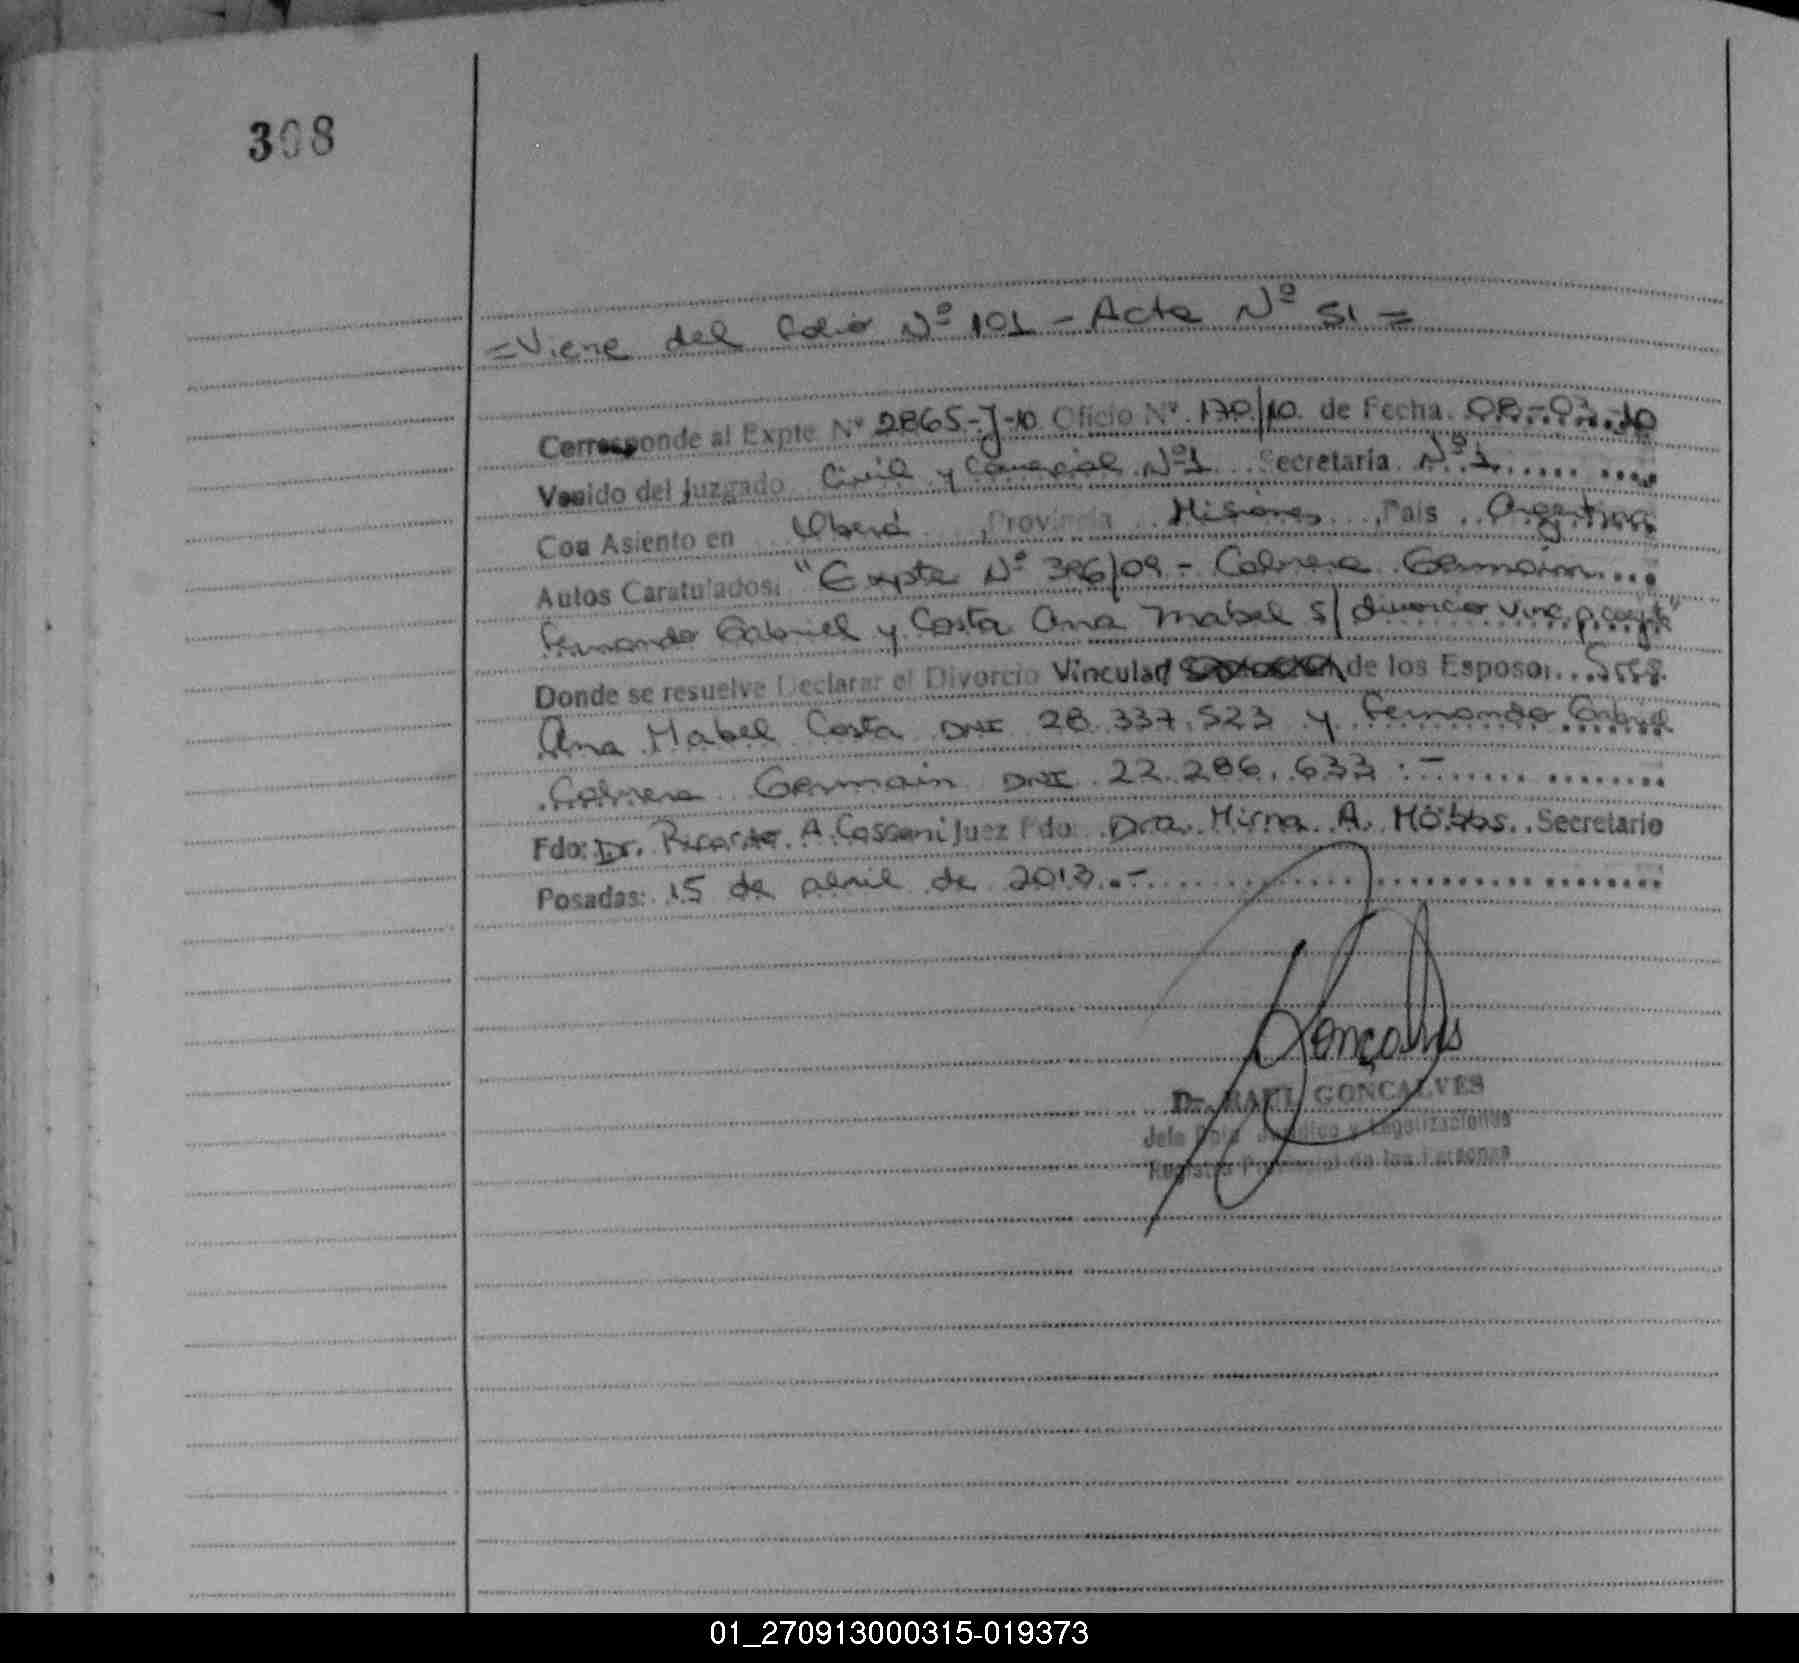 308
=Viene del folio Nº 101 - Acta Nº 51 =
Corresponde al Expte Nº 2865-J-10 Oficio Nº 170/10 de Fecha 08-03-10
Venido del Juzgado Civil y Comercial Nº1 Secretaria Nº 1
Con Asiento en Oberá, Provincia Misiones, Pais Argentina
Autos Caratulados: "Expte Nº 396/09 - Cabrera Germain
Fernando Gabriel y Costa Ana Mabel s/ divorcio vinc. p.
Donde se resuelve Declarar el Divorcio Vincular de los Esposos
Ana Mabel Costa DNI 28.337.523 y Fernando Gabriel
Cabrera Germain DNI 22.286.633:-
Fdo: Dr. Ricardo A. Cassoni Juez Fdo: Dra. Mirna A. Möbbs. Secretario
Posadas: 15 de abril de 2013.-
Gonçalves
Dr. RAUL GONÇALVES
Jefe Dpto Juridico y Legalizaciones
Registro Provincial de las Personas
01_270913000315-019373